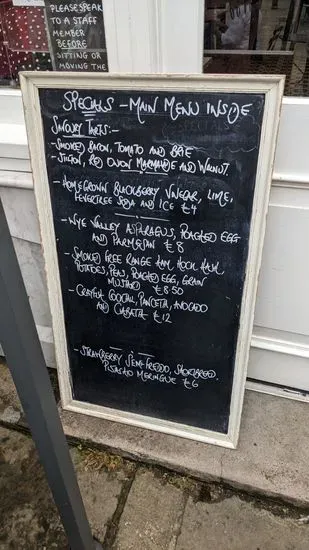 PLEASE SPEAK
TO A STAFF
MEMBER
BEFORE
SITTING OR
MOVING THE
SPECIALS - MAIN MENU INSIDE
SAVOURY TARTS:-
- SMOKED BACON, TOMATO AND BRIE
- STILTON, RED ONION MARMALADE AND WALNUT.
- HOMEGROWN BLACKBERRY VINEGAR, LIME,
FEVERTREE SODA AND ICE £4
- WYE VALLEY ASPARAGUS, POACHED EGG
AND PARMESAN £8
- SMOKED FREE RANGE HAM, HOCK HASH,
POTATOES, PEAS, POACHED EGG, GRAIN
MUSTARD £8.50
- CRAYFISH COCKTAIL, PANCETTA, AVOCADO
AND CIABATTA £12
- STRAWBERRY SEMI-FREDDO, SHORTBREAD,
PISTACHIO MERINGUE £6